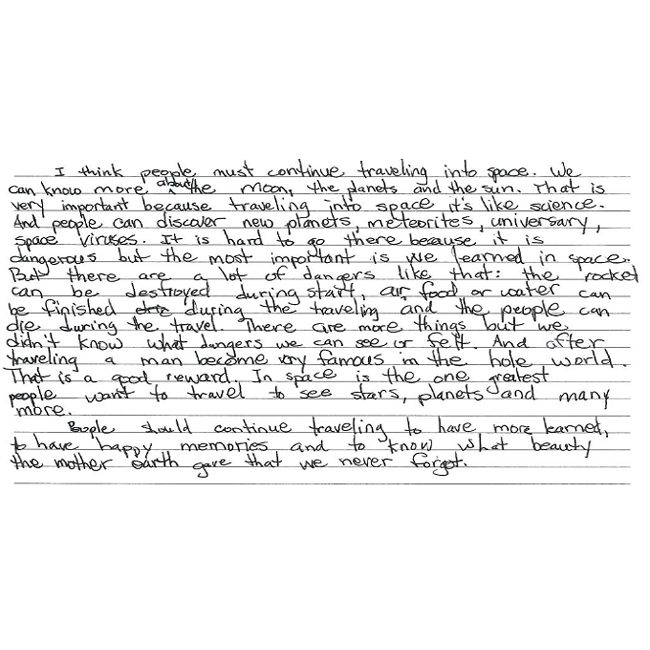 I think people must continue traveling into space. We
can know more about the moon, the planets and the sun. That is
very important because traveling into space it's like science.
And people can discover new planets, meteorites, universary,
space viruses. It is hard to go there because it is
dangerous but the most important is we learned in space.
But there are a lot of dangers like that: the rocket
can be destroyed during start, air, food or water can
be finished during the traveling and the people can
die during the travel. There are more things but we
didn't know what dangers we can see or felt. And after
traveling a man become very famous in the hole world.
That is a good reward. In space is the one greatest
people want to travel to see stars, planets and many
more.
People should continue traveling to have more learned,
to have happy memories and to know what beauty
the mother earth gave that we never forget.